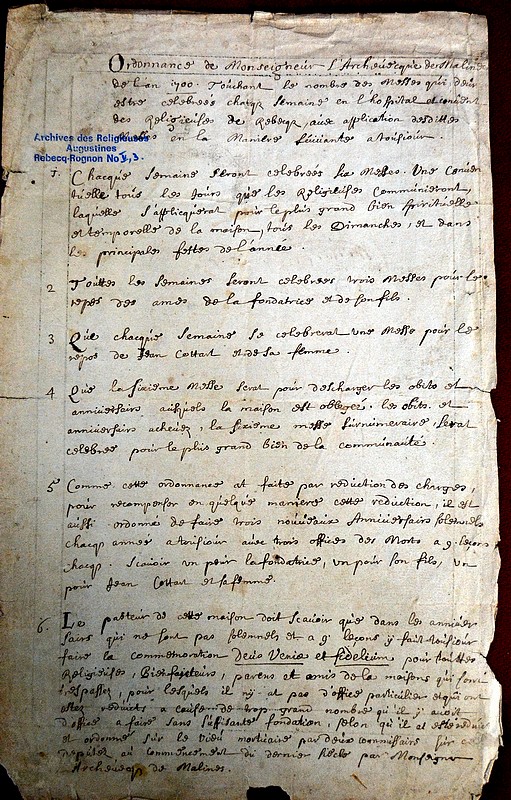 Ordonnance de Monseigneur L'Archeuecque de Malines
de l'an 1700. Touchant le nombre des Messes qui deüs
estre celebrees chacq; semaine en l'hospital et conuent
des Religieuses de Rebecq, auec application desdittes
Messes en la Maniere suiuante a tousiour
Archives des Religieuses
Augustines
Rebecq-Rognon No V, 3.
1. Chacque semaine seront celebrees six Messes. Une Conuen
tuelle tous les jours que les Religieuses Communieront,
laquelle s'applicquerat pour le plus grand bien spirituelle
et temporelle de la maison, tous les Dimanches, et dans
les principales festes de l'année.
2 Touttes les semaines seront celebrees trois Messes pour le
repos des ames de la fondatrice et de son fils.
3 Que chacque semaine se celebrerat une Messe pour le
repos de Jean Cottart et de sa femme.
4 Que la sixieme Messe serat pour descharger les obits et
anniuersairs ausquels la maison est obligeé, les obits et
anniuersairs acheuez, la sixieme messe surnumeraire, serat
celebreé pour le plus grand bien de la communauté
5 Comme cette ordonnance at faite par reduction des charges,
pour recompenser en quelque maniere cette reduction, il est
aussi ordonné de faire trois nouueaux Anniuersairs solemnels
chacq; année a tousiour auec trois offices des Morts a 9. leçons
chacq; scauoir un pour la fondatrice, un pour son fils, un
pour Jean Cottart et sa femme.
6. Le pasteur de cette maison doit scauoir que dans les anniuer
sairs qui ne sont pas solennels et a 9 leçons y fait tousiour
faire la commemoration Deus Veniæ et fidelium, pour touttes
Religieuses, Bienfaiteurs, parens et amis de la maison qui sont
trespassez, pour lesquels il nÿ at pas d'office particulier et qui ont
estez reduits a cause de trop grand nombre qu'il y auoit
d'office a faire sans suffisante fondation, selon qu'il at esté reduit
et ordonné sur le vieu mortuaire par deux commissaire sur ce
deputez au commencement du dernier siecle par Monseigr
Archeuecq; de Malines.